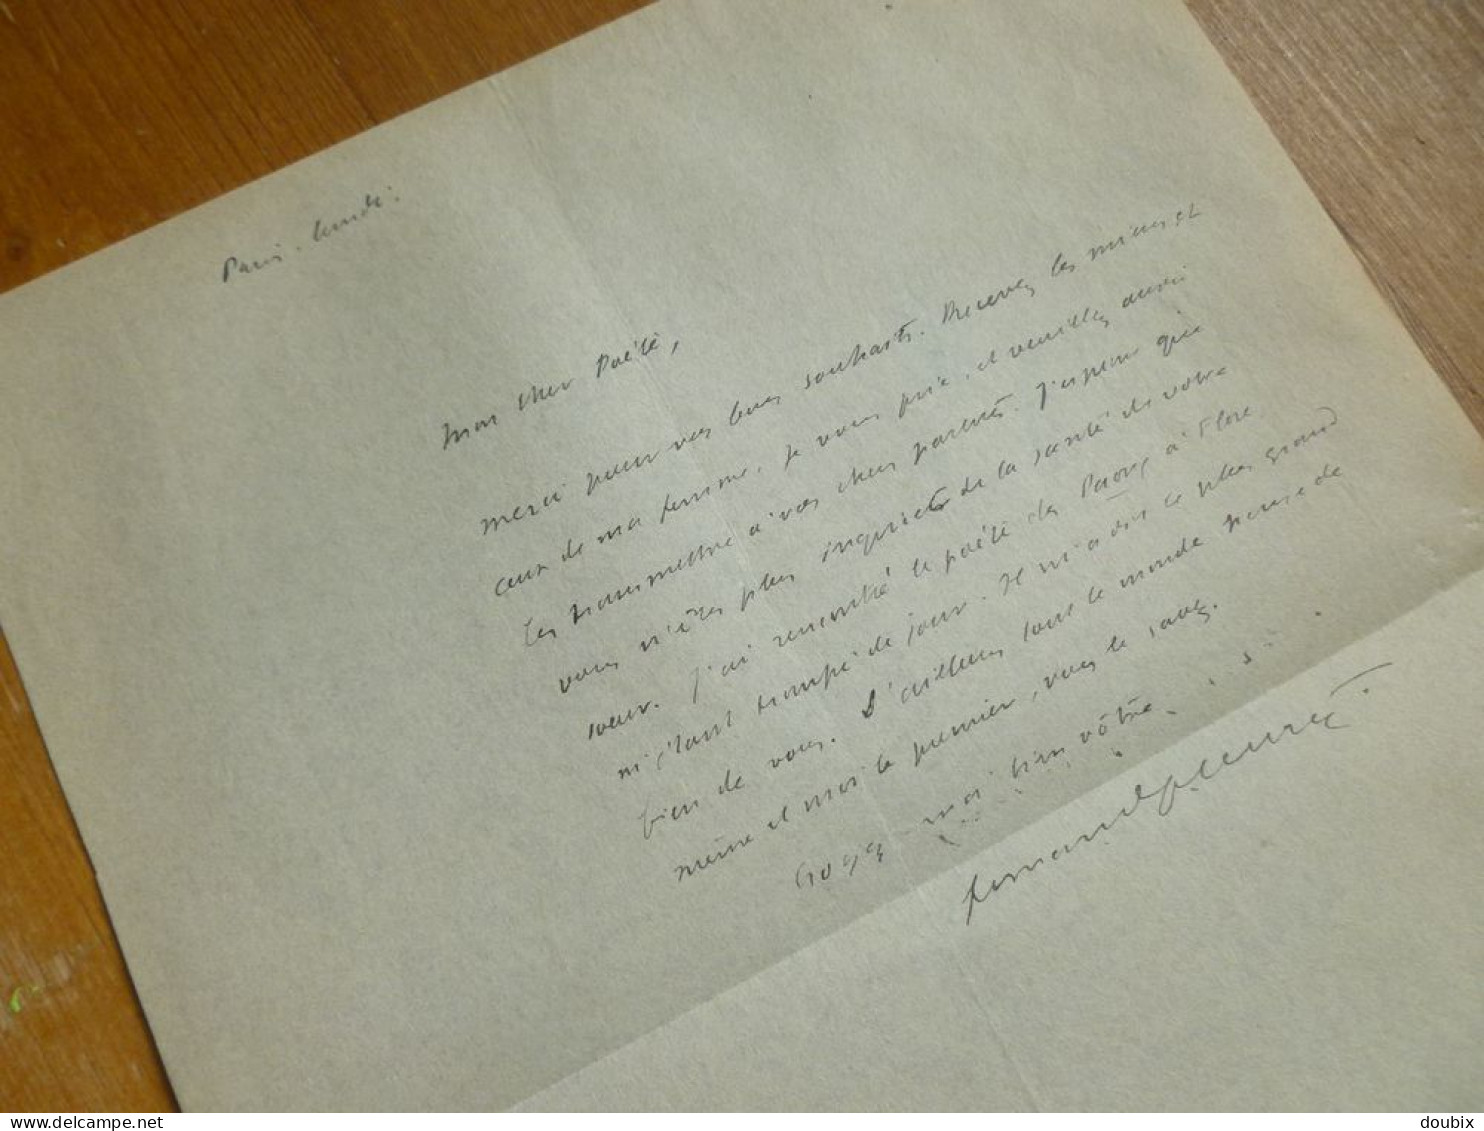 Paris. lundi.
Mon cher Poète,
merci pour vos bons souhaits. Recevez les miens et
ceux de ma femme, je vous prie, et veuillez aussi
les transmettre à vos chers parents. J'espère que
vous n'êtes plus inquiets de la santé de votre
soeur. J'ai rencontré le poète des à Flore
m'étant trompé de jour. Il m'a dit le plus grand
bien de vous. D'ailleurs tout le monde pense de
même et moi le premier, vous le savez.
Croyez-moi bien vôtre
fernand fleuret.
delcampe.net
doubix